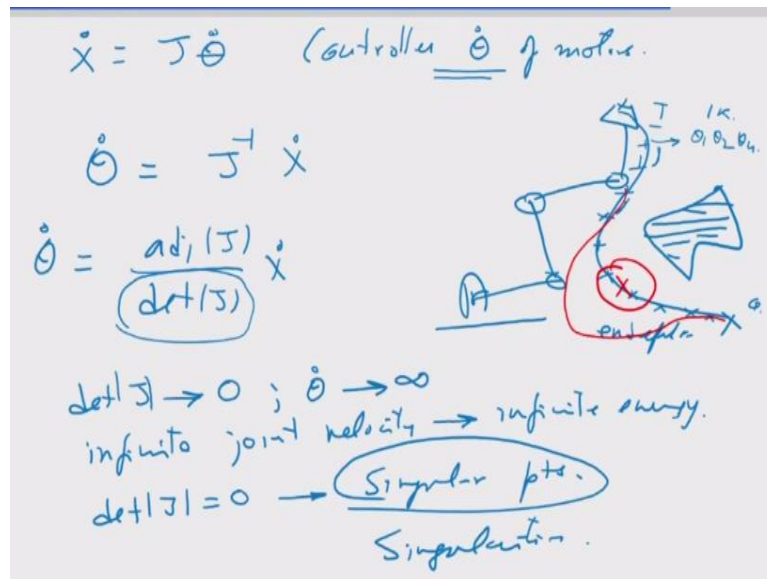 Ẋ = J θ̇ Controller θ̇ of motion.
θ̇ = J⁻¹ Ẋ
θ̇ = adj(J) / det(J) Ẋ
I IK.
θ₁ θ₂ θ₄.
det|J| → 0 ; θ̇ → ∞
infinite joint velocity → infinite energy.
det|J| = 0 → Singular pts.
Singularities.